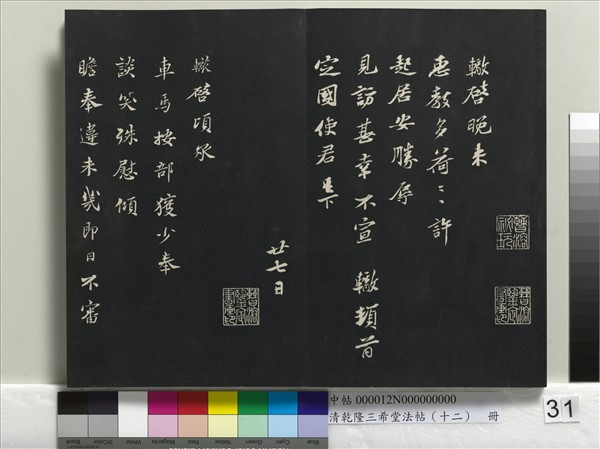 轍啓晚來
惠教多荷〻許
起居安勝辱
見訪甚幸不宣　轍頓首
定國使君足下
廿七日
轍啓頃承
車馬按部獲少奉
談笑殊慰傾
瞻奉違未幾即日不審
中帖 000012N000000000
清乾隆三希堂法帖（十二） 冊
31